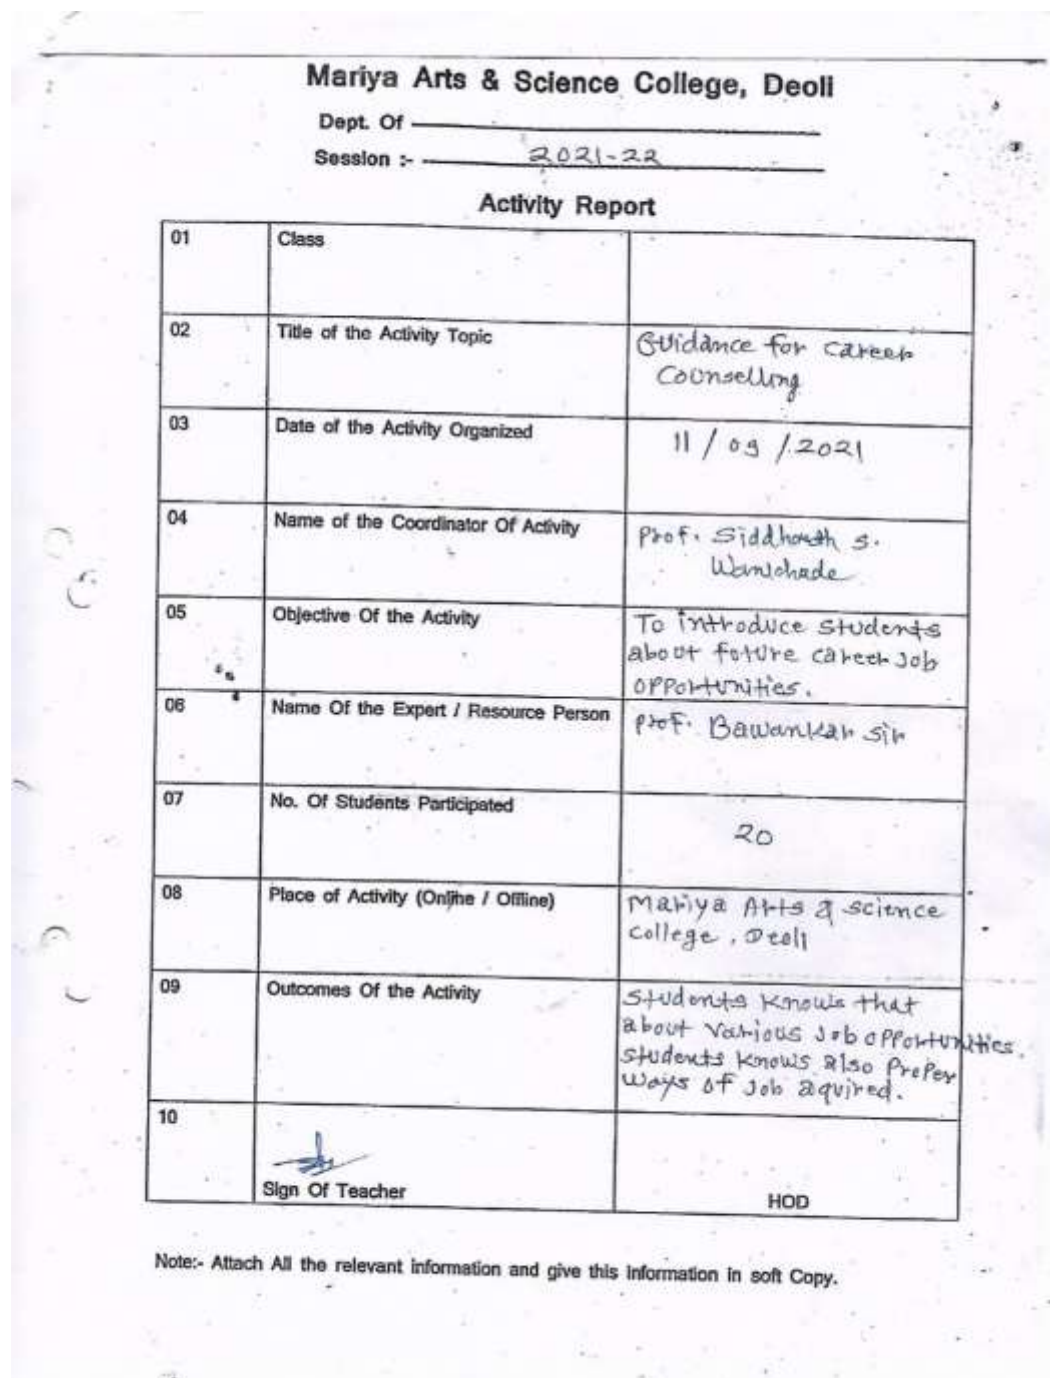 Mariya Arts & Science College, Deoli
Dept. Of
Session :- 2021-22
Activity Report
01 Class
02 Title of the Activity Topic Guidance for career
Counselling
03 Date of the Activity Organized 11 / 09 / 2021
04 Name of the Coordinator Of Activity Prof. Siddharth S.
05 Objective Of the Activity To introduce students
about future career Job
opportunities.
06 Name Of the Expert / Resource Person Prof. Bawankar Sir
07 No. Of Students Participated 20
08 Place of Activity (Online / Offline) Mariya Arts & science
college, Deoli
09 Outcomes Of the Activity Students Knows that
about Various Job opportunities.
Students Knows also Proper
Ways of Job aquired.
10
Sign Of Teacher HOD
Note:- Attach All the relevant information and give this Information in soft Copy.